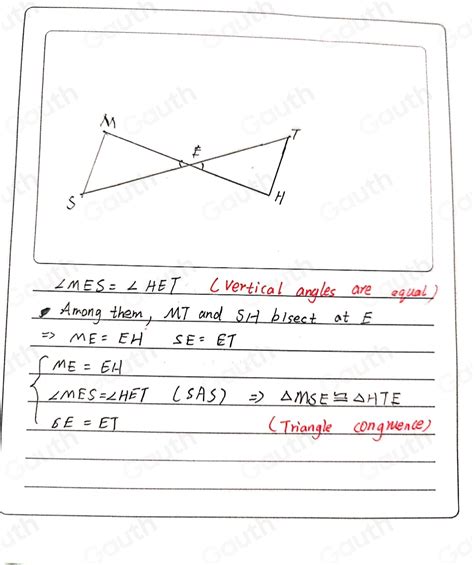 M
T
E
S
H
∠MES = ∠HET (Vertical angles are equal)
Among them, MT and SH bisect at E
=> ME = EH SE = ET
ME = EH
∠MES=∠HET (SAS) => △MSE≌△HTE
SE = ET (Triangle congruence)
Gauth